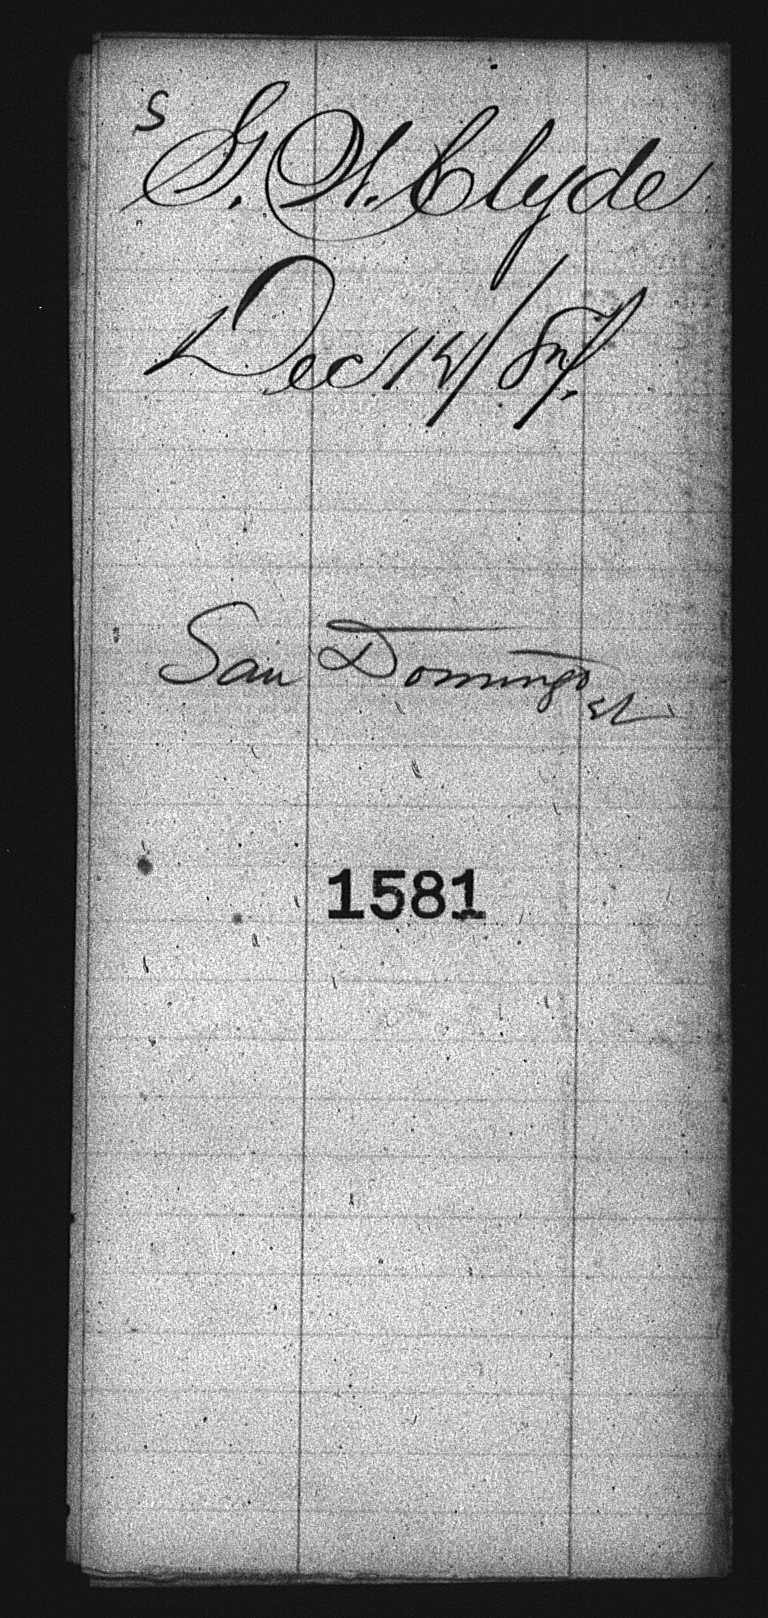 S
G. W. Clyde
Dec 12/87.
San Domingo
1581